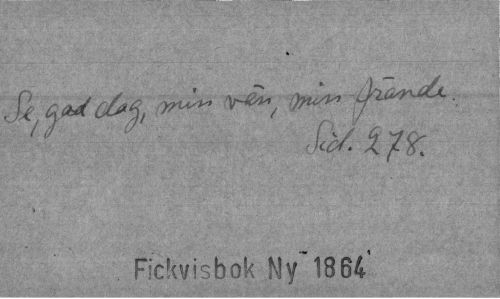 Se, god dag, min vän, min frände.
Sid. 278.
Fickvisbok Ny 1864